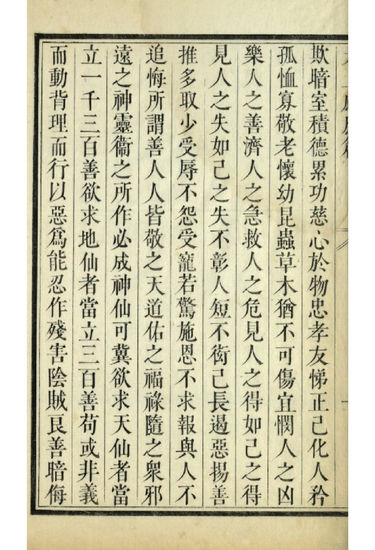 欺暗室積德累功慈心於物忠孝友悌正己化人矜
孤恤寡敬老懷幼昆蟲草木猶不可傷宜憫人之凶
樂人之善濟人之急救人之危見人之得如己之得
見人之失如己之失不彰人短不衒己長遏惡揚善
推多取少受辱不怨受寵若驚施恩不求報與人不
追悔所謂善人人皆敬之天道佑之福祿隨之衆邪
遠之神靈衞之所作必成神仙可冀欲求天仙者當
立一千三百善欲求地仙者當立三百善苟或非義
而動背理而行以惡爲能忍作殘害陰賊良善暗侮